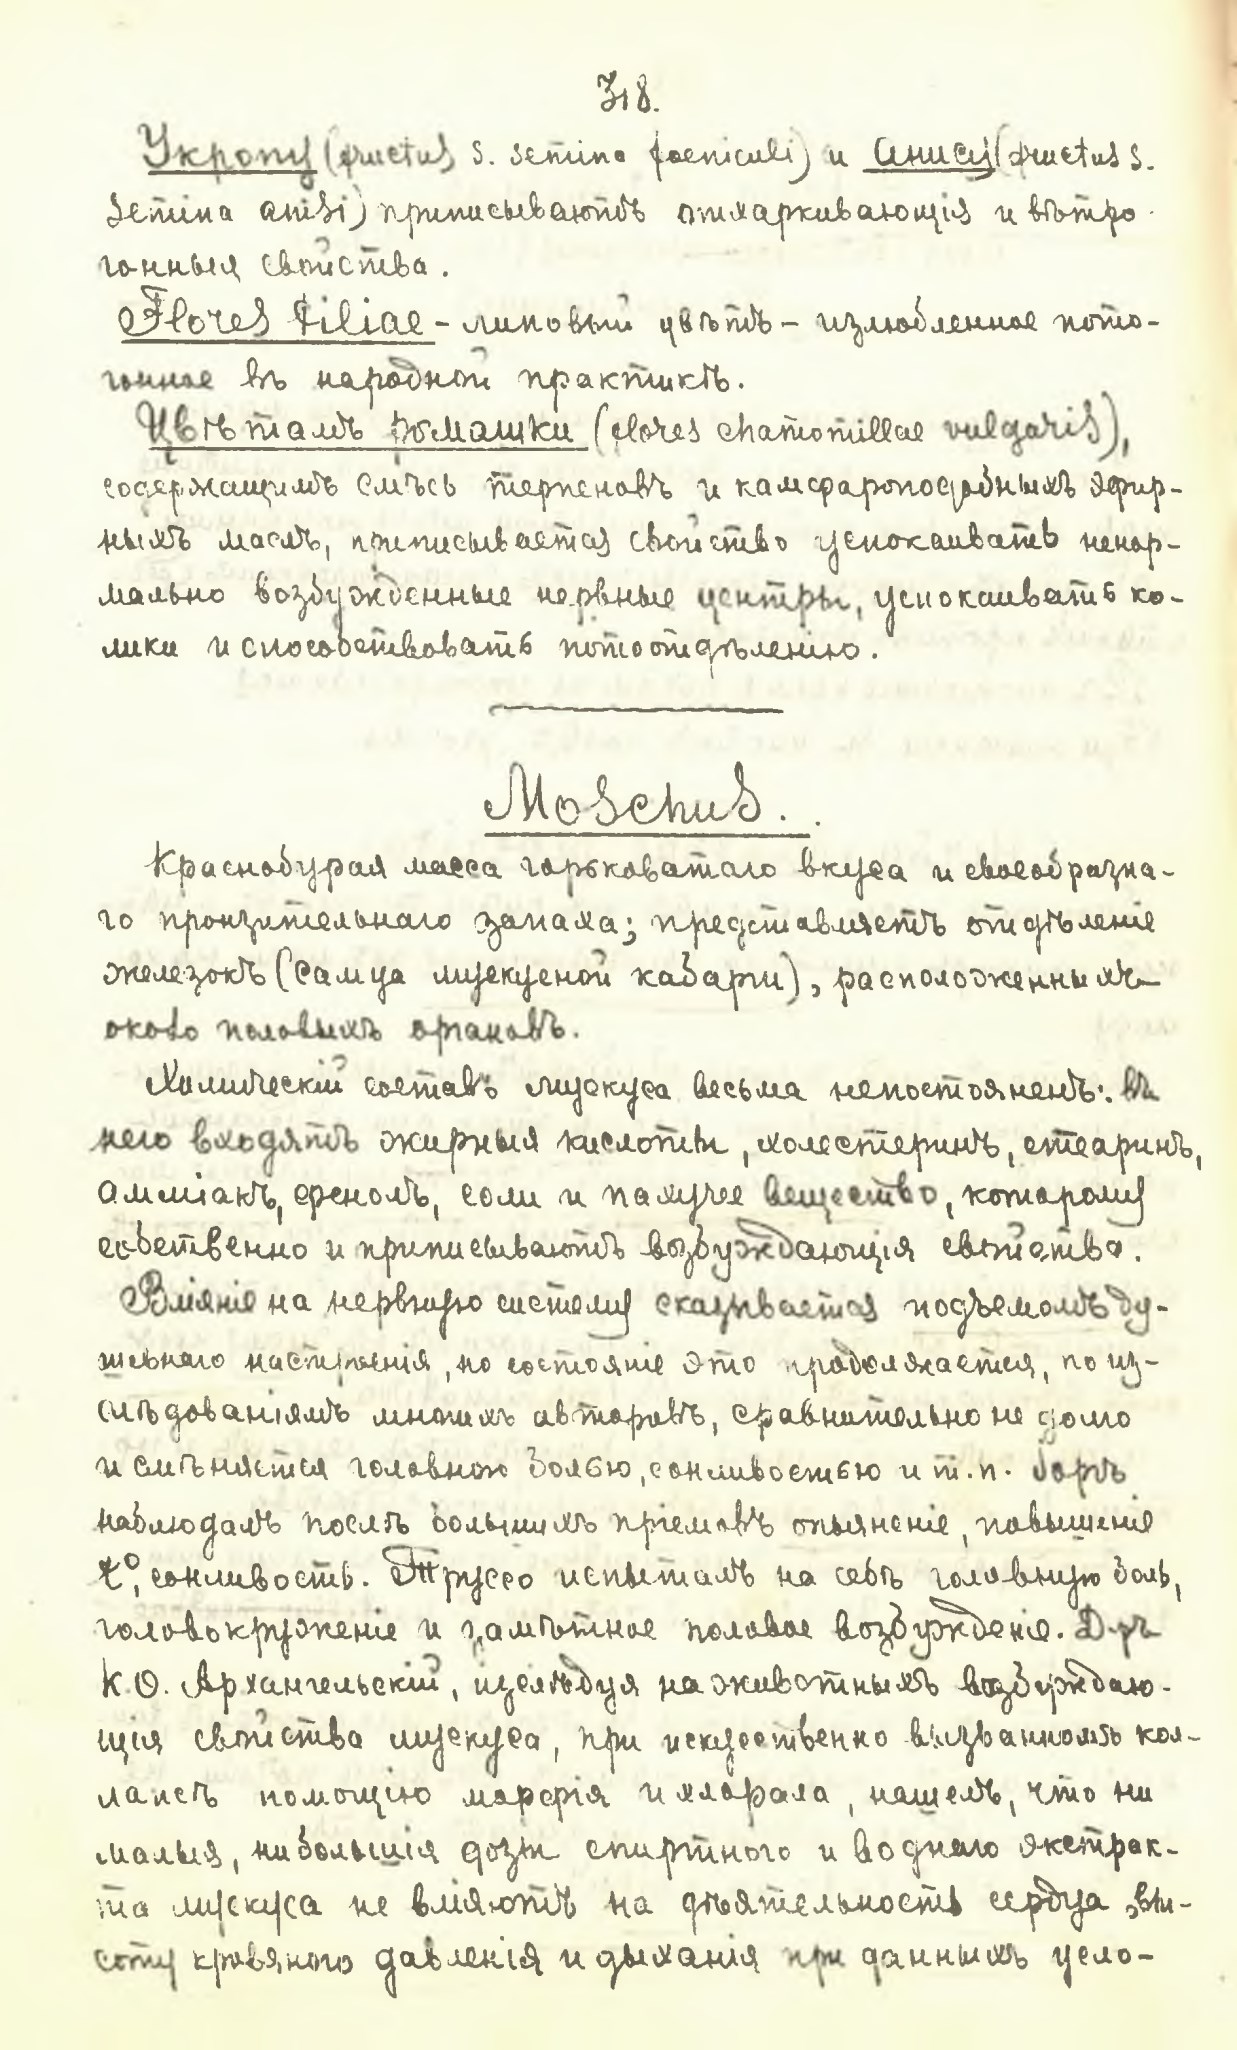 318.
Укропу (fructus s. semina foeniculi) и анису (fructus s.
semina anisi) приписываютъ отхаркивающія и вѣтро-
гонныя свойства.
Flores tiliae - липовый цвѣтъ - излюбленное пото-
гонное въ народной практикѣ.
Цвѣтамъ ромашки (flores chamomillae vulgaris),
содержащимъ смѣсь терпеновъ и камфароподобныхъ эфир-
ныхъ маслъ, приписывается свойство успокаивать ненор-
мально возбужденные нервные центры, успокаивать ко-
лики и способствовать потоотдѣленію.
Moschus.
Краснобурая масса горьковатаго вкуса и своеобразна-
го пронзительнаго запаха; представляетъ отдѣленіе
железокъ (самца мускусной кабарги), расположенныхъ
около половыхъ органовъ.
Химическій составъ мускуса весьма непостояненъ: въ
него входятъ жирныя кислоты, холестеринъ, стеаринъ,
амміакъ, фенолъ, соли и пахучее вещество, которому
собственно и приписываютъ возбуждающія свойства.
Вліяніе на нервную систему сказывается подъемомъ ду-
шевнаго настроенія, но состояніе это продолжается, по из-
слѣдованіямъ многихъ авторовъ, сравнительно не долго
и смѣняется головною болью, сонливостью и т.п. Боргъ
наблюдалъ послѣ большихъ пріемовъ опьяненіе, повышеніе
t°, сонливость. Труссо испыталъ на себѣ головную боль,
головокруженіе и замѣтное половое возбужденіе. Д-ръ
К.О. Архангельскій, изслѣдуя на животныхъ возбуждаю-
щія свойства мускуса, при искусственно вызванномъ кол-
лапсѣ помощію морфія и хлорала, нашелъ, что ни
малыя, ни большія дозы спиртного и водного экстрак-
та мускуса не вліяютъ на дѣятельность сердца, вы-
соту кровяного давленія и дыханія при данныхъ усло-